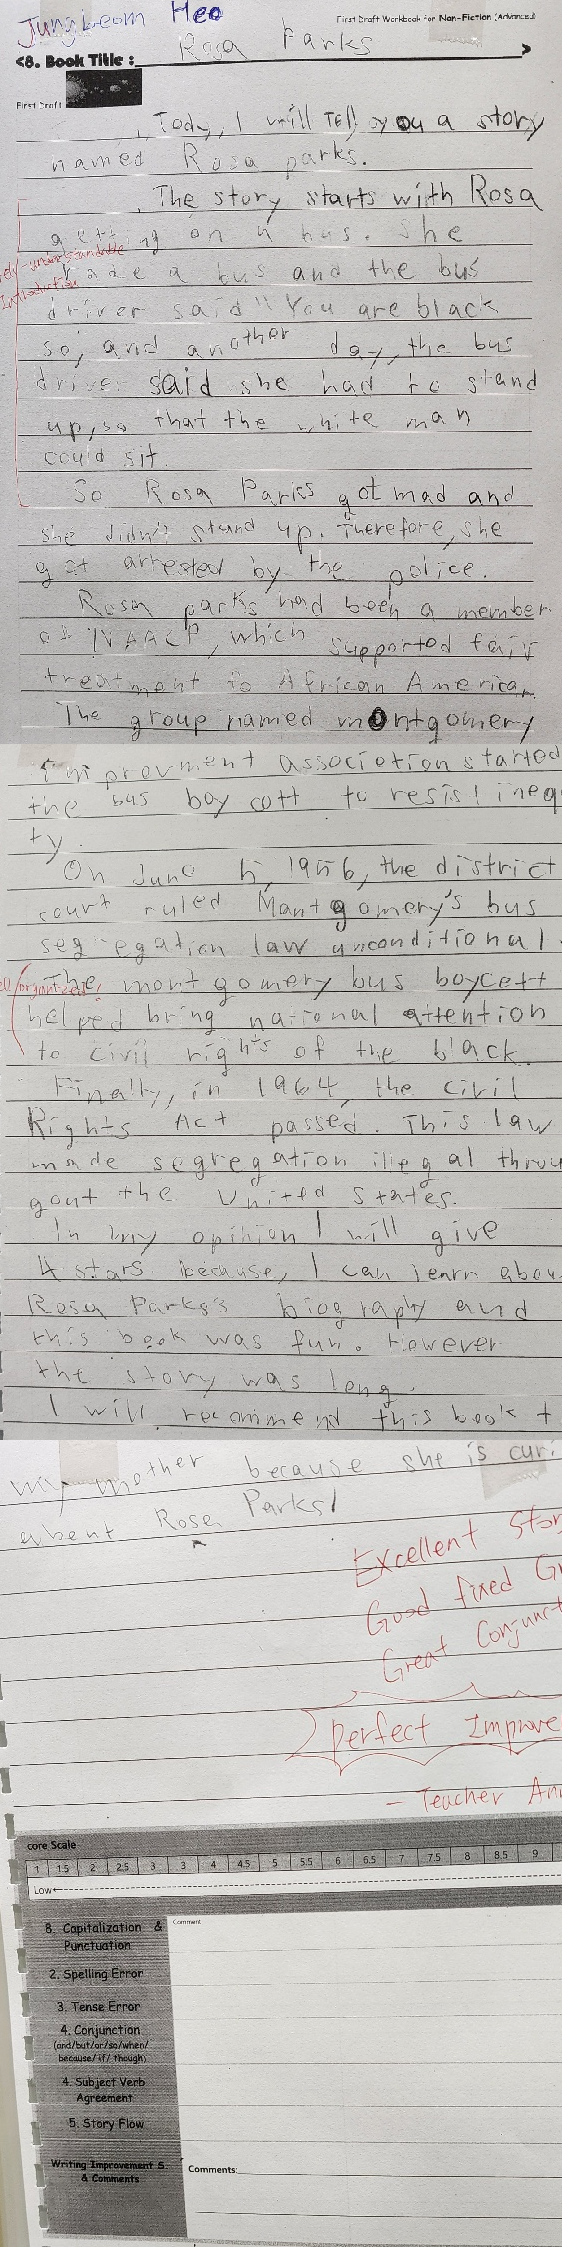 Jungbeom Heo
First Draft Workbook for Non-Fiction (Advanced)
<8. Book Title : Rosa Parks
First Draft
Today, I will Tell you a story
named Rosa parks.
The story starts with Rosa
getting on a bus. She
rode a bus and the bus
Introduction
driver said "You are black
so, and another day, the bus
driver said she had to stand
up, so that the white man
could sit.
So Rosa Parks got mad and
she didn't stand up. Therefore, she
got arrested by the police.
Rosa parks had been a member
of NAACP, which supported fair
treatment to African American
The group named montgomery
improvment association started
the bus boy cott to resist ineq
ty.
On June 5, 1956, the district
court ruled Mantgomery's bus
segregation law unconditional
The montgomery bus boycett
organized!
helped bring national attention
to civil rights of the black
Finally, in 1964, the Civil
Rights Act passed. This law
made segregation illegal throu
gout the United States.
In my opinion I will give
4 stars because, I can learn abou
Rosa Parks's biography and
this book was fun. However
the story was long.
I will recommend this book t
my mother because she is curi
about Rosa Parks!
Excellent Stor
Good fixed Gr
Great Conjunct
Perfect Improve
- Teacher An
core Scale
1 1.5 2 2.5 3 3 4 4.5 5 5.5 6 6.5 7 7.5 8 8.5 9
Low
8. Capitalization &
Punctuation
Comment
2. Spelling Error
3. Tense Error
4. Conjunction
(and/but/or/so/when/
because/if/though)
4. Subject Verb
Agreement
5. Story Flow
Writing Improvement S.
& Comments
Comments: